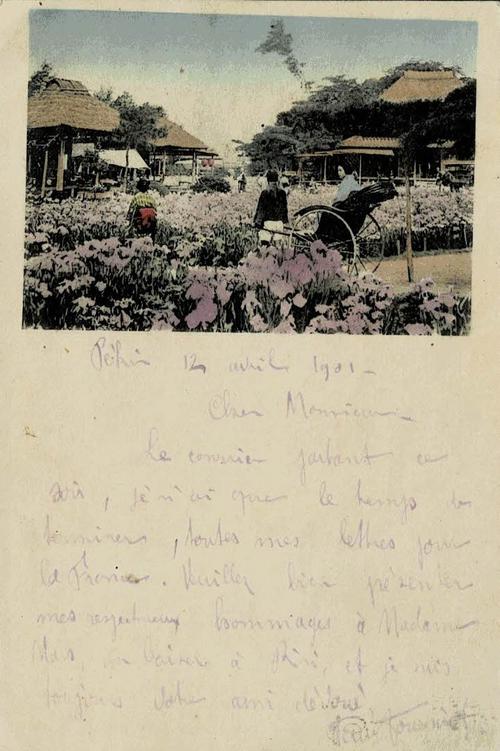 Pékin 12 avril 1901 -
Cher Monsieur -
Le courrier partant ce
soir, je n'ai que le temps de
terminer, toutes mes lettres pour
la France. Veuillez bien présenter
mes respectueux hommages à Madame
un baiser à Kiki, et je suis
toujours votre ami dévoué